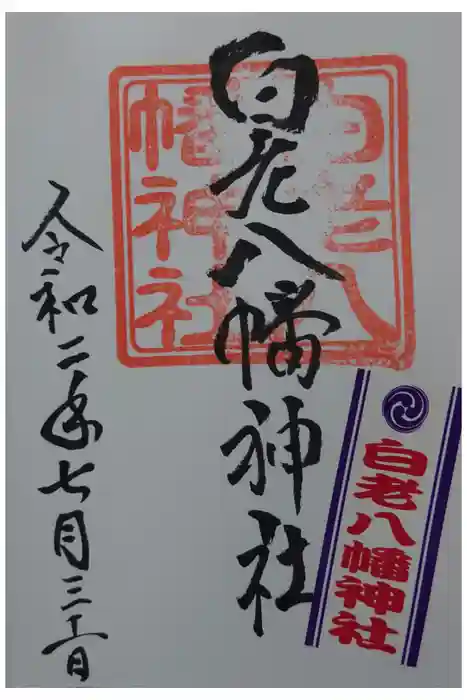 白老八幡神社
白老八
幡神社
白老八幡神社
令和二年七月三十一日